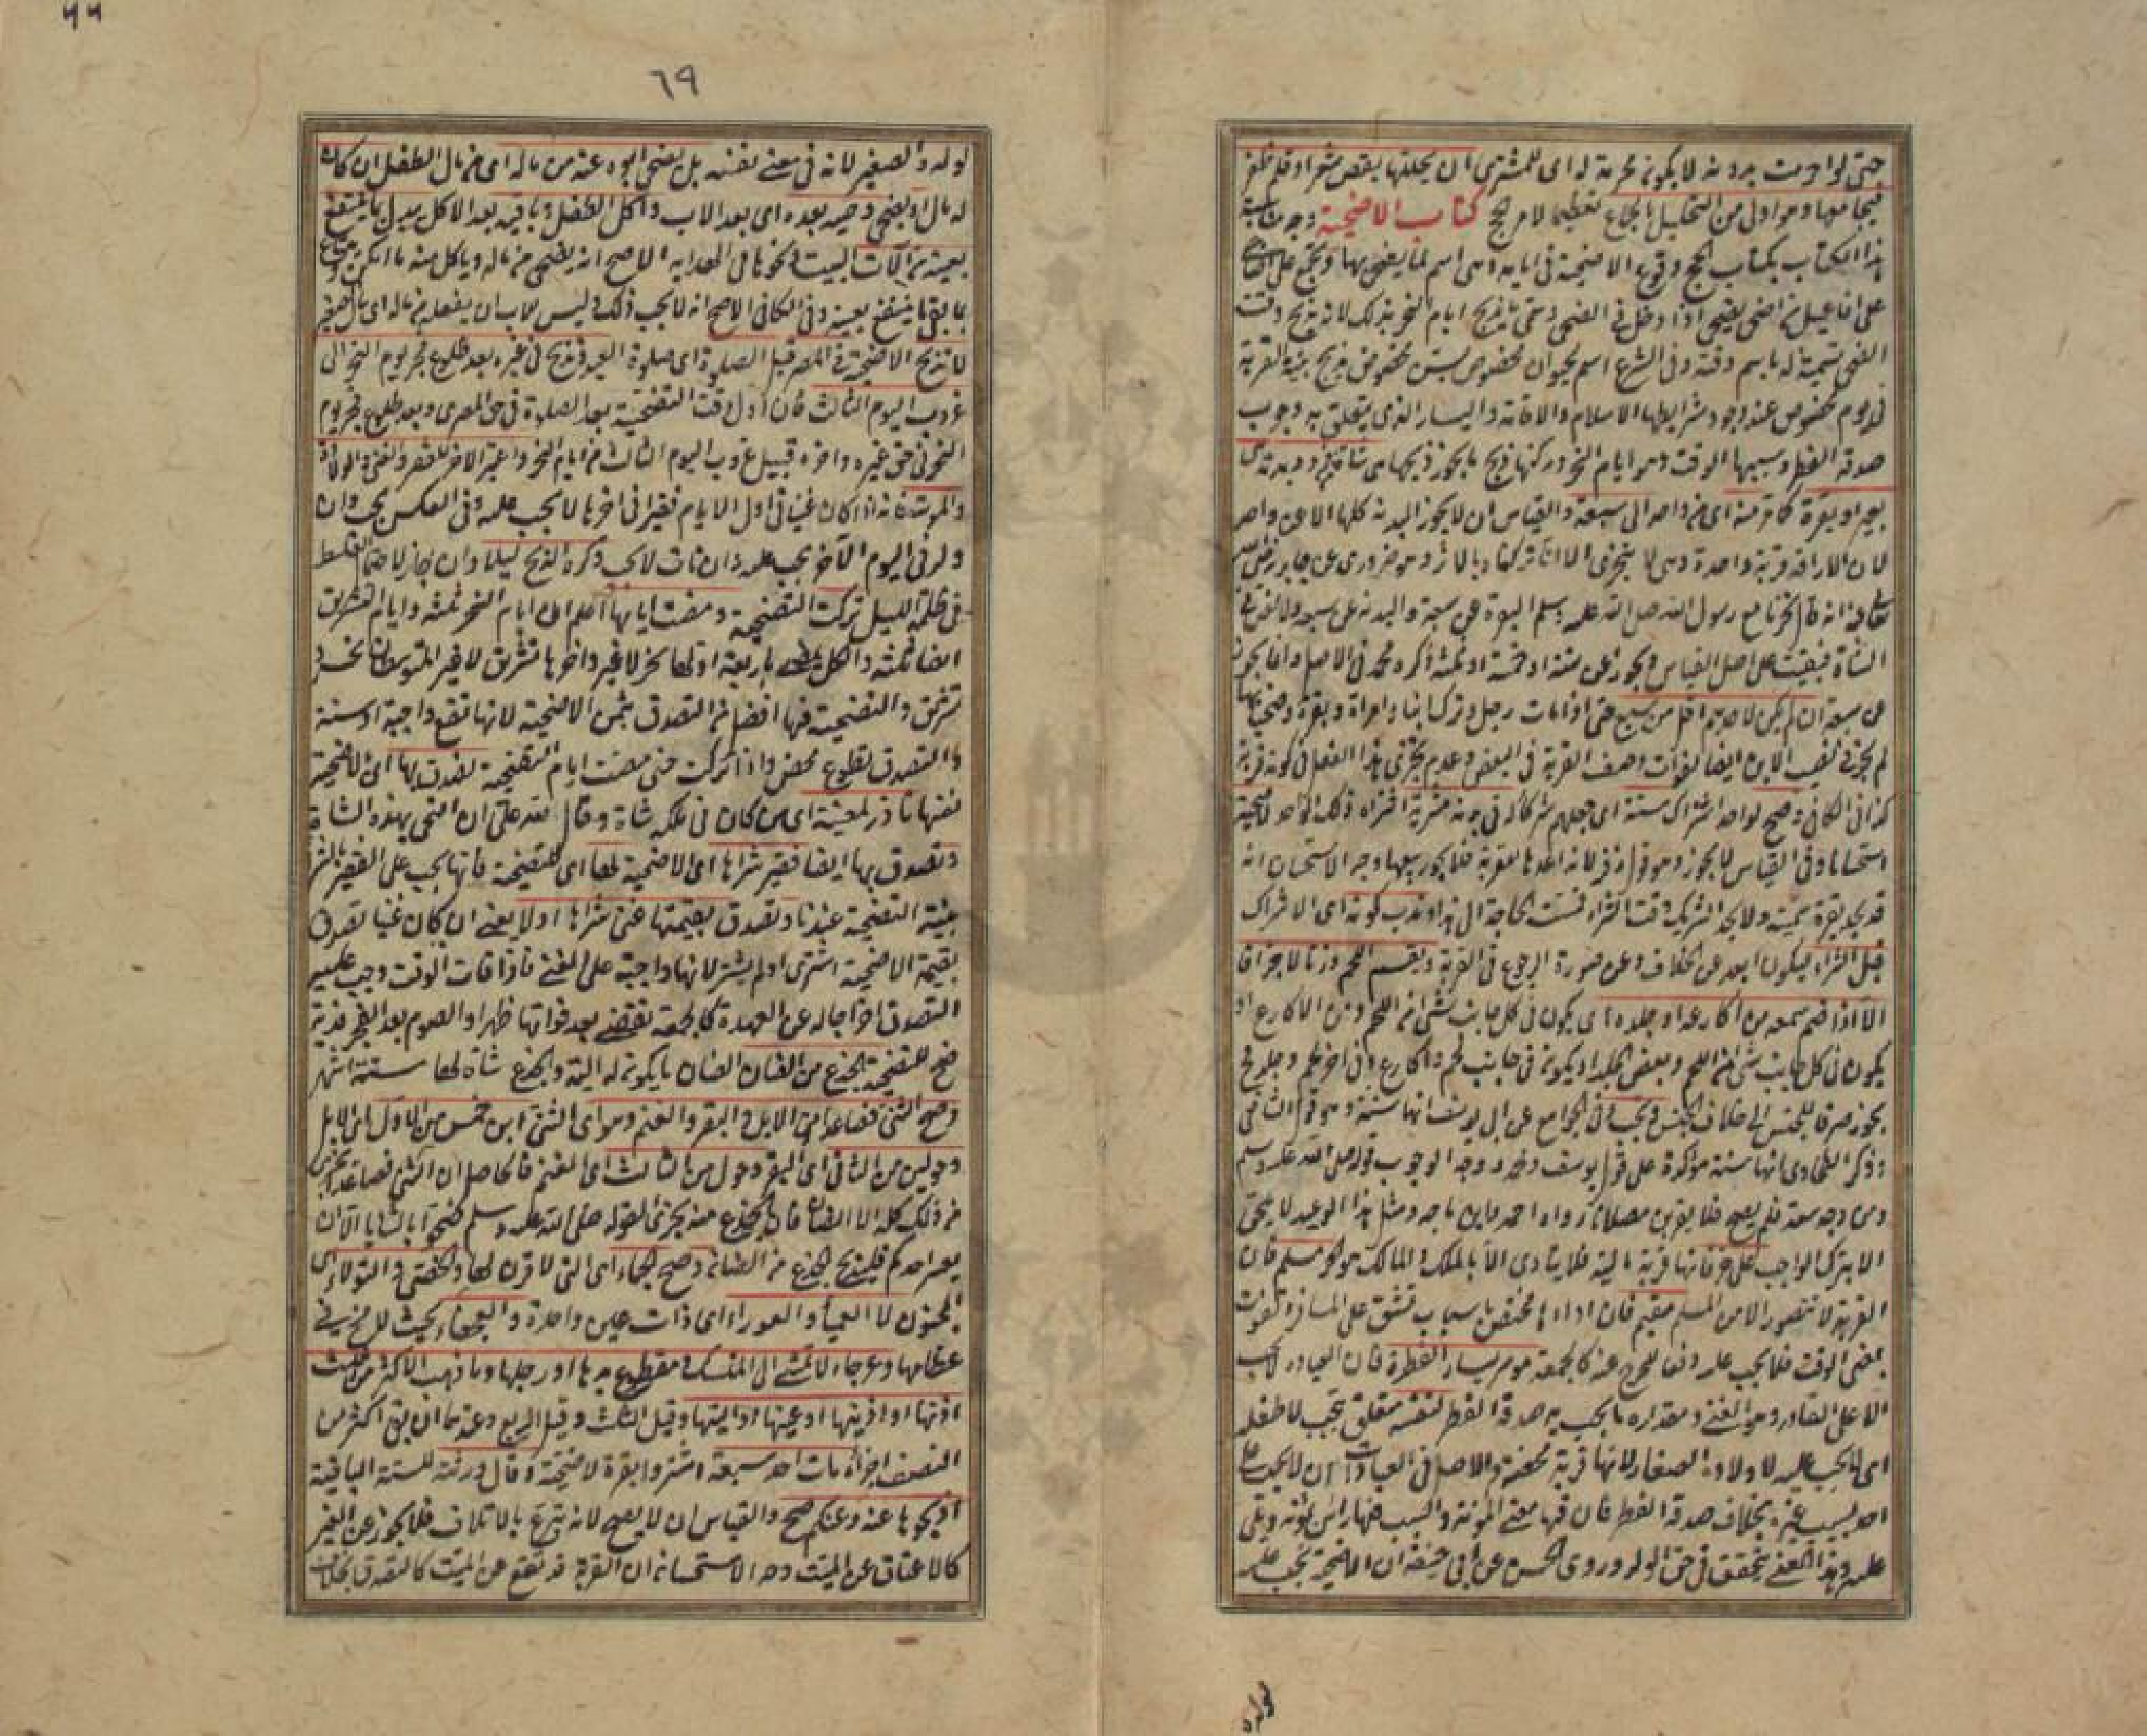 حتى لو احرمت بدونه لا يكون محرمة له اى للمشترى ان يحللها بقص شعر او قلم ظفر
فيجامعها وهو اولى من التحليل بالجماع تعظيما لامر الحج كتاب الاضحية وجه مناسبة
هذا الكتاب بكتاب الحج وقوع الاضحية فى ايامه وهى اسم لما يضحى بها وتجمع على اضاحى
على افاعيل من اضحى يضحى اذا دخل فى الضحى وسمى ما يذبح ايام النحر بذلك لانه يذبح وقت
الضحى تسمية له باسم وقته وفى الشرع اسم لحيوان مخصوص بسن مخصوص يذبح بنية القربة
فى يوم مخصوص عند وجود شرايطها الاسلام والاقامة واليسار الذى يتعلق به وجوب
صدقة الفطر وسببها الوقت وهو ايام النحر وركنها ذبح ما يجوز ذبحها هى شاة من فرد وبدنة هى
بعير او بقرة كائنة منه اى من واحد الى سبعة والقياس ان لا يجوز البدنة كلها الا عن واحد
لان الاراقة قربة واحدة وهى لا يتجزى الا انا تركناه بالاثر وهو ما روى عن جابر رضى الله
تعالى عنه انه قال نحرنا مع رسول الله صلى الله عليه وسلم البقرة عن سبعة والبدنة عن سبعة ولا نص فى
الشاة فبقيت على اصل القياس ويجوز عن ستة او خمسة او ثلثة ذكره محمد فى الاصل وانما يجوز
عن سبعة ان لم يكن لاحدهم اقل من سبع حتى اذا مات رجل وترك ابنا وامراة وبقرة وضحيا بها
لم يجز فى نصيب الابن ايضا لفوات وصف القربة فى البعض وعدم تجزى هذا الفعل فى كونه قربة
كذا فى الكافى وصح لواحد اشراك ستة اى جعلهم شركاء له فى بدنة مشرية اشتراه ذلك الواحد لاضحية
استحسانا وفى القياس لا يجوز وهو قول زفر لانه اعدها للقربة فلا يجوز بيعها وجه الاستحسان انه
قد يجد بقرة سمينة ولا يجد الشريك وقت الشراء فمست الحاجة الى هذا وندب كونه اى الاشراك
قبل الشراء ليكون ابعد عن الخلاف وعن صورة الرجوع فى القربة ويقسم اللحم وزنا لا جزافا
الا اذا ضم معه من اكارعه او جلده اى يكون فى كل جانب شئ من اللحم ومن الاكارع او
يكون فى كل جانب شئ من اللحم وبعض الجلد او يكون فى جانب لحم واكارع وفى اخر لحم وجلد فح
يجوز صرفا للجنس الى خلاف الجنس وتجب وفى الجوامع عن ابى يوسف انها سنة وهو قول الشافعى
وذكر الطحاوى انها سنة مؤكدة على قول ابى يوسف ومحمد وجه الوجوب قوله صلى الله عليه وسلم
ومن وجد سعة فلم يضح فلا يقربن مصلانا رواه احمد وابن ماجه ومثل هذا الوعيد لا يلحق
الا بترك الواجب على حر فانها قربة مالية فلا يتادى الا بالملك والمالك هو الحر مسلم فان
القربة لا تتصور الا من المسلم مقيم فان اداءها مختص باسباب تشق على المسافر وتفوت
بمضى الوقت فلا يجب عليه دفعا للحرج عنه كالجمعة موسر يسار الفطرة فان العبادة لا يجب
الا على القادر وهو الغنى ومقداره ما يجب به صدقة الفطر لنفسه متعلق بتجب لا طفله
اى لا يجب عليه لاولاده الصغار لانها قربة محضة والاصل فى العبادات ان لا يجب على
احد بسبب غيره بخلاف صدقة الفطر فان فيها معنى المؤنة والسبب فيها راس يمونه ويلى
عليه وهذا المعنى يتحقق فى حق الولد وروى الحسن عن ابى حنيفة ان الاضحية تجب عليه
لولده
٦٩
لولده الصغير لانه فى معنى نفسه بل يضحى ابوه عنه من ماله اى من مال الطفل ان كان
له مال او يضحى وصيه بعده اى بعد الاب واكل الطفل وباقيه بعد الاكل يبدل بما ينتفع
بعينه من آلات البيت ونحوها فى الهداية الاصح انه يضحى من ماله وياكل منه ما امكن ويبتاع
بما بقى ما ينتفع بعينه وفى الكافى الاصح انه لا يجب ذلك وليس للاب ان يفعله من ماله اى مال الصغير
لا تذبح الاضحية فى المصر قبل الصلوة اى صلوة العيد وتذبح فى غيره بعد طلوع فجر يوم النحر الى
غروب اليوم الثالث فان اول وقت التضحية بعد الصلوة فى حق المصرى وبعد طلوع فجر يوم
النحر فى حق غيره واخره قبيل غروب اليوم الثالث من ايام النحر واعتبر الاخر للفقر والغنى والولادة
والموت فانه اذا كان غنيا فى اول الايام فقيرا فى اخرها لا يجب عليه وفى العكس يجب وان
ولد فى اليوم الآخر يجب عليه وان مات لا يجب وكره الذبح ليلا وان جاز لاحتمال الغلط
فى ظلمة الليل تركت التضحية ومضت ايامها اعلم ان ايام النحر ثلثة وايام التشريق
ايضا ثلثة والكل يمضى باربعة اولها نحر لا غير واخرها تشريق لا غير المتوسطان نحر و
تشريق والتضحية فيها افضل من التصدق بثمن الاضحية لانها تقع واجبة او سنة
والتصدق تطوع محض واذا تركت حتى مضت ايام التضحية تصدق بها اى الاضحية
نفسها ناذر لمعينة اى من كان فى ملكه شاة وقال لله على ان اضحى بهذه الشاة
وتصدق بها ايضا فقير شراها اى الاضحية لها اى للتضحية فانها تجب على الفقير بالشراء
بنية التضحية عندنا وتصدق بقيمتها غنى شراها اولا يعنى ان كان غنيا تصدق
بقيمة الاضحية اشترى او لم يشتر لانها واجبة على الغنى فاذا فات الوقت وجب عليه
التصدق اخراجا له عن العهدة كالجمعة تقضى بعد فواتها ظهرا والصوم بعد العجز فدية
صح للتضحية الجذع من الضان الضان ما يكون له الية والجذع شاة لها ستة اشهر
وصح الثنى فصاعدا من الابل والبقر والغنم وهو اى الثنى ابن خمس من الاول اى الابل
وحولين من الثانى اى البقر وحول من الثالث اى الغنم فالحاصل ان الثنى فصاعدا يجزى
من ذلك كله الا الضان فان الجذع منه يجزئ لقوله صلى الله عليه وسلم ضحوا بالثنايا الا ان
يعسر احدكم فليذبح الجذع من الضان وصح الجماء اى التى لا قرن لها والخصى والثولاء اى
المجنون لا العمياء والعوراء اى ذات عين واحدة والعجفاء بحيث لا مخ فى
عظامها وعرجاء لا تمشى الى المنسك ومقطوع يدها او رجلها وما ذهب الاكثر من ثلث
اذنها او ذنبها او عينها او اليتها وقيل الثلث وقيل الربع وعندهما ان بقى اكثر من
النصف اجزأه مات احد سبعة اشتروا بقرة لاضحية وقال ورثته للستة الباقية
اذبحوها عنه وعنكم صح والقياس ان لا يصح لانه تبرع بالاتلاف فلا يجوز عن الغير
كالاعتاق عن الميت وجه الاستحسان ان القربة قد تقع عن الميت كالتصدق بخلاف